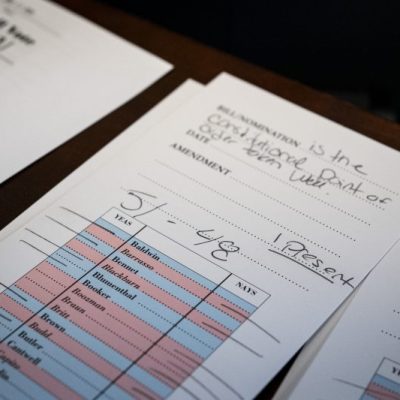 BILL/NOMINATION is the
Constitutional Point of
DATE Order
AMENDMENT
51 - 48
1 Present
YEAS
NAYS
Baldwin
Barrasso
Bennet
Blackburn
Blumenthal
Booker
Boozman
Braun
Britt
Brown
Budd
Butler
Cantwell